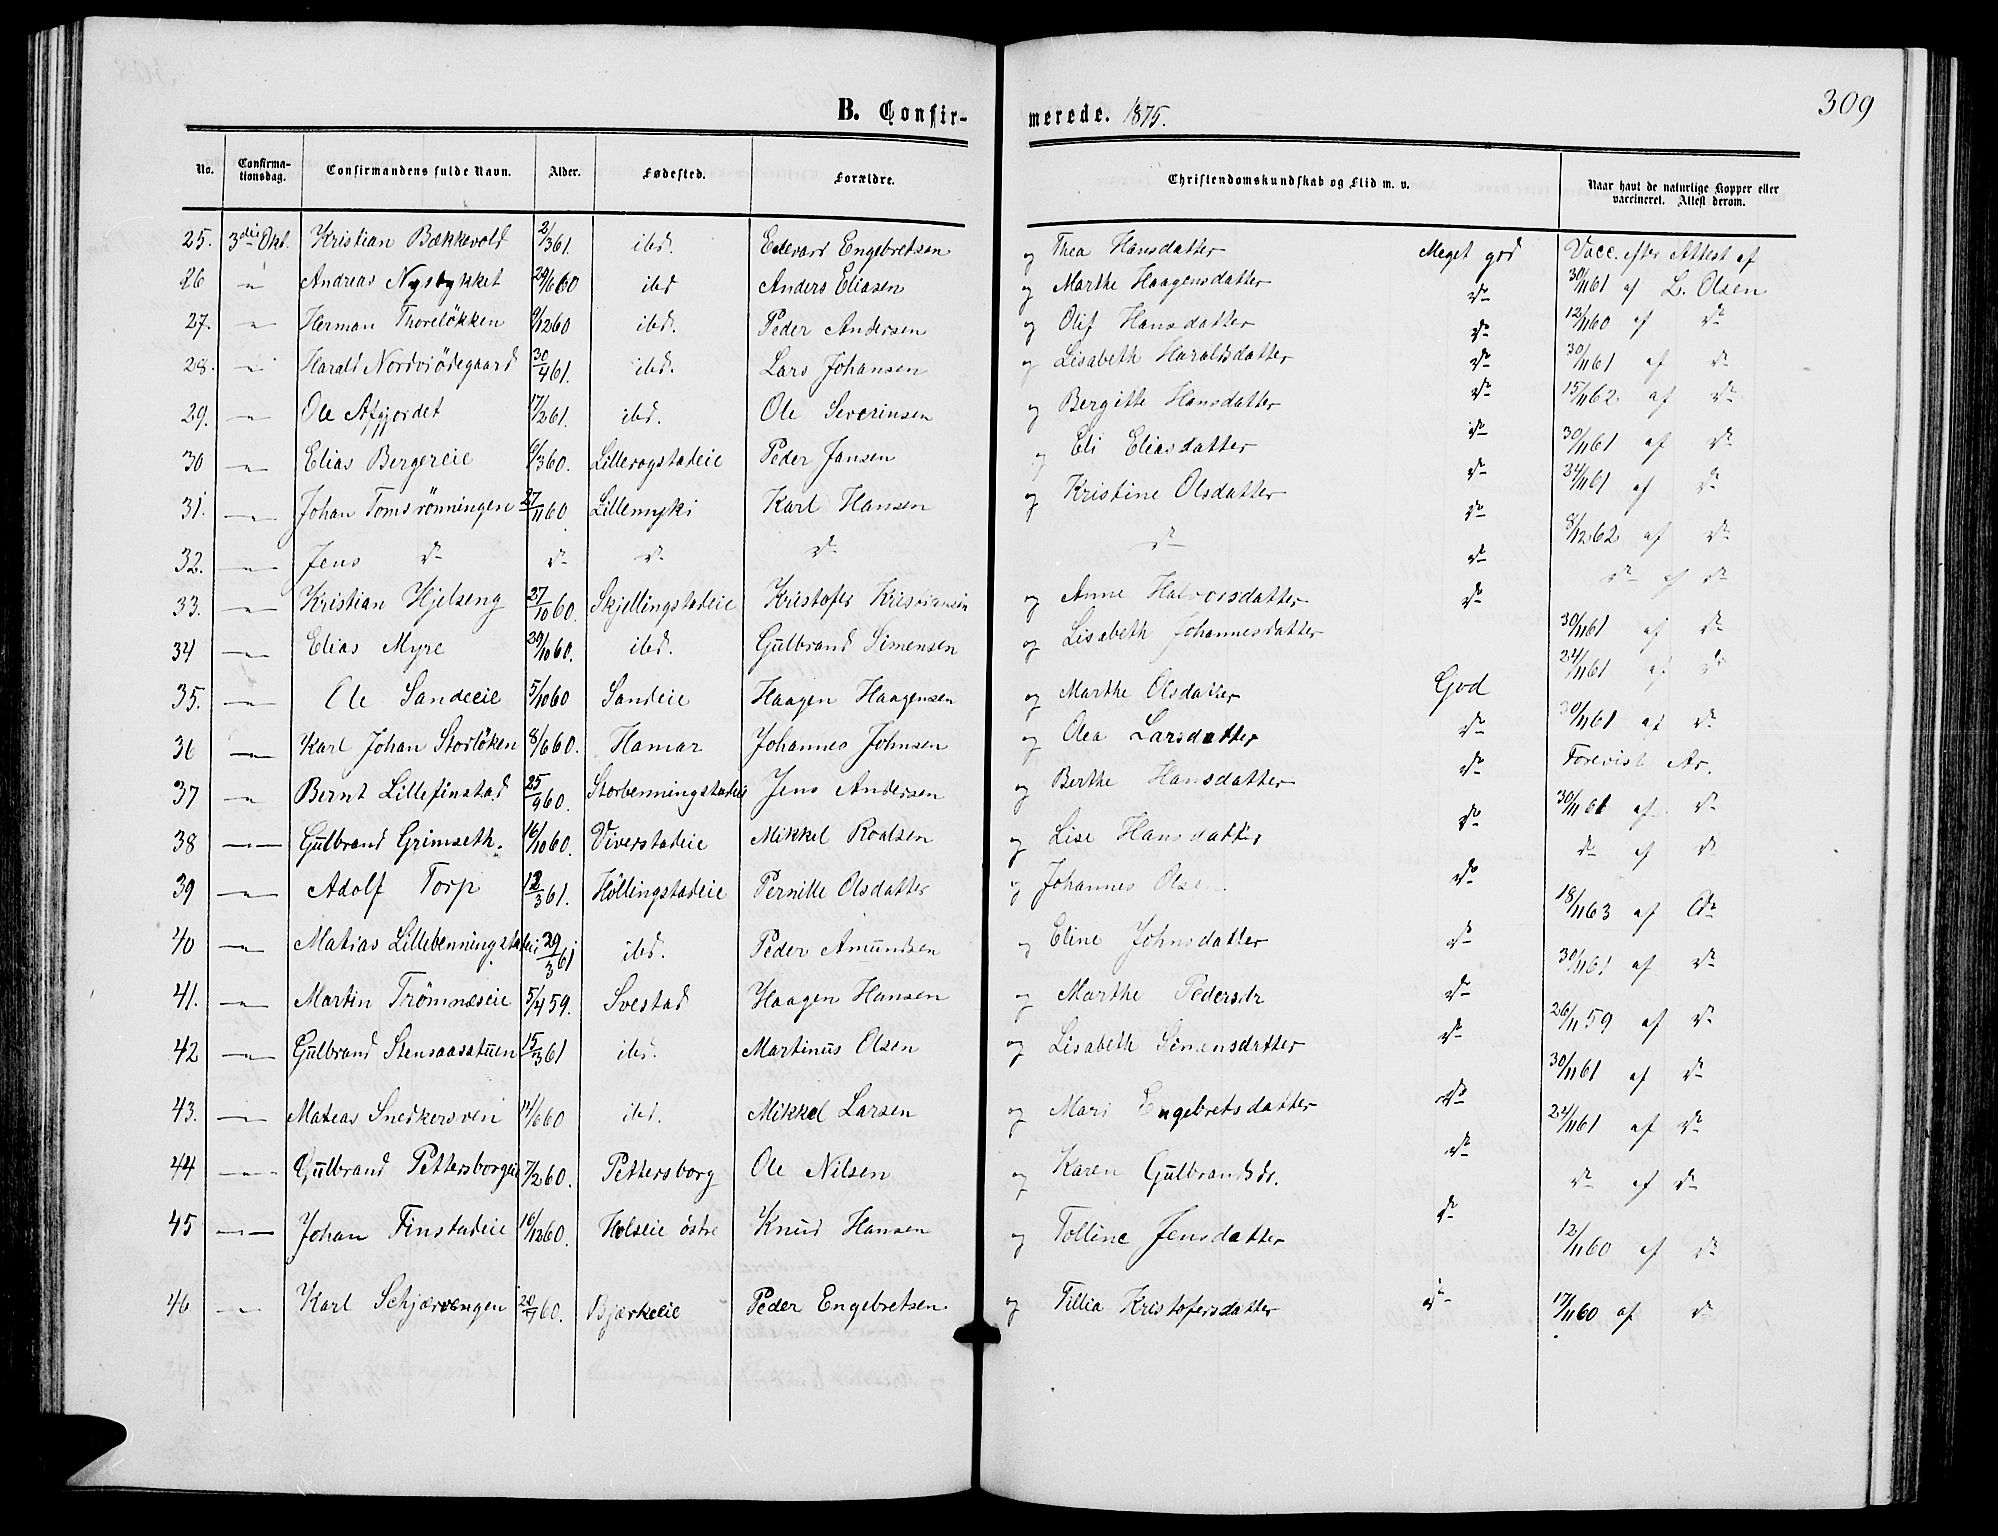 309
B. Confirmerede. 1875.
No. Confirmationsdag. Confirmandens fulde Navn. Alder. Fødested. Forældre. Christendomskundskab og Flid m. v. Naar havt de naturlige Kopper eller vaccineret. Attest derom.
25. 3die Okt. Kristian Bækkevold 2/3 61. ibd. Edevard Engebretsen og Thea Hansdatter Meget god Vacc. efter Attest af
26 " Andreas Nysbykket 29/6 60 ibd Anders Eliasen og Marthe Haagensdatter do 30/11 61 af L. Olsen
27. " Herman Thoreløkken 6/12 60 ibd. Peder Andersen og Olif Hansdatter do 12/11 60 af do
28. " Harald Nordviødegaard 30/4 61. ibd. Lars Johansen og Lisabeth Haraldsdatter do 30/11 61 af do
29. " Ole Afgjordet 17/2 61. ibd. Ole Severinsen og Bergitte Hansdatter do 15/11 62 af do
30 " Elias Bergereie 6/3 60. Lillerogstadeie Peder Jansen og Eli Eliasdatter do 30/11 61 af do
31. " Johan Tomsrønningen 27/11 60. Lillemyki Karl Hansen og Kristine Olsdatter do 24/11 61 af do
32. " Jens do do do do do do 8/12 62 af do
33. " Kristian Hjelseng 27/10 60. Skjellingstadeie Kristofer Kristiansen og Anne Halvorsdatter do do af do
34 " Elias Myre 29/10 60. ibd. Gulbrand Simensen og Lisabeth Johannesdatter 30/11 61 af do
35. " Ole Sandeeie 5/10 60 Sandeie Haagen Haagensen og Marthe Olsdatter God 24/11 61 af do
36 " Karl Johan Storløken 8/6 60. Hamar Johannes Johnsen og Olea Larsdatter do 30/11 61 af do
37 " Bernt Lillefinstad 25/9 60. Storbenningstadeie Jens Andersen og Berthe Hansdatter do Forevist At.
38 " Gulbrand Grimseth. 16/10 60. Viverstadeie Mikkel Roalsen og Lise Hansdatter do 30/11 61 af do
39 " Adolf Torp 12/3 61. Hollingstadeie Pernille Olsdatter og Johannes Olsen. do do af do
40 " Matias Lillebenningstadeie 29/3 61 ibd. Peder Amundsen og Eline Johnsdatter do 18/11 63 af do
41. " Martin Trømnæseie 5/4 59. Svestad Haagen Hansen og Marthe Pedersdr do 30/11 61 af do
42 " Gulbrand Stensaasstuen 15/3 61 ibd. Martinus Olsen og Lisabeth Simensdatter do 26/11 59 af do
43. " Mateas Snedkersven 14/6 60 ibd. Mikkel Larsen og Mari Engebretsdatter do 30/11 61 af do
44 " Gulbrand Pettersborgeie 7/2 60. Pettersborg Ole Nilsen og Karen Gulbrandsdr. do 24/11 61 af do
45 " Johan Finstadeie 16/12 60. Holseie østre Knud Hansen og Tolline Jensdatter do do af do
46 " Karl Schjærvengen 20/9 60. Bjærkeeie Peder Engebretsen og Tillia Kristofersdatter do 12/11 60 af do
17/11 60 af do